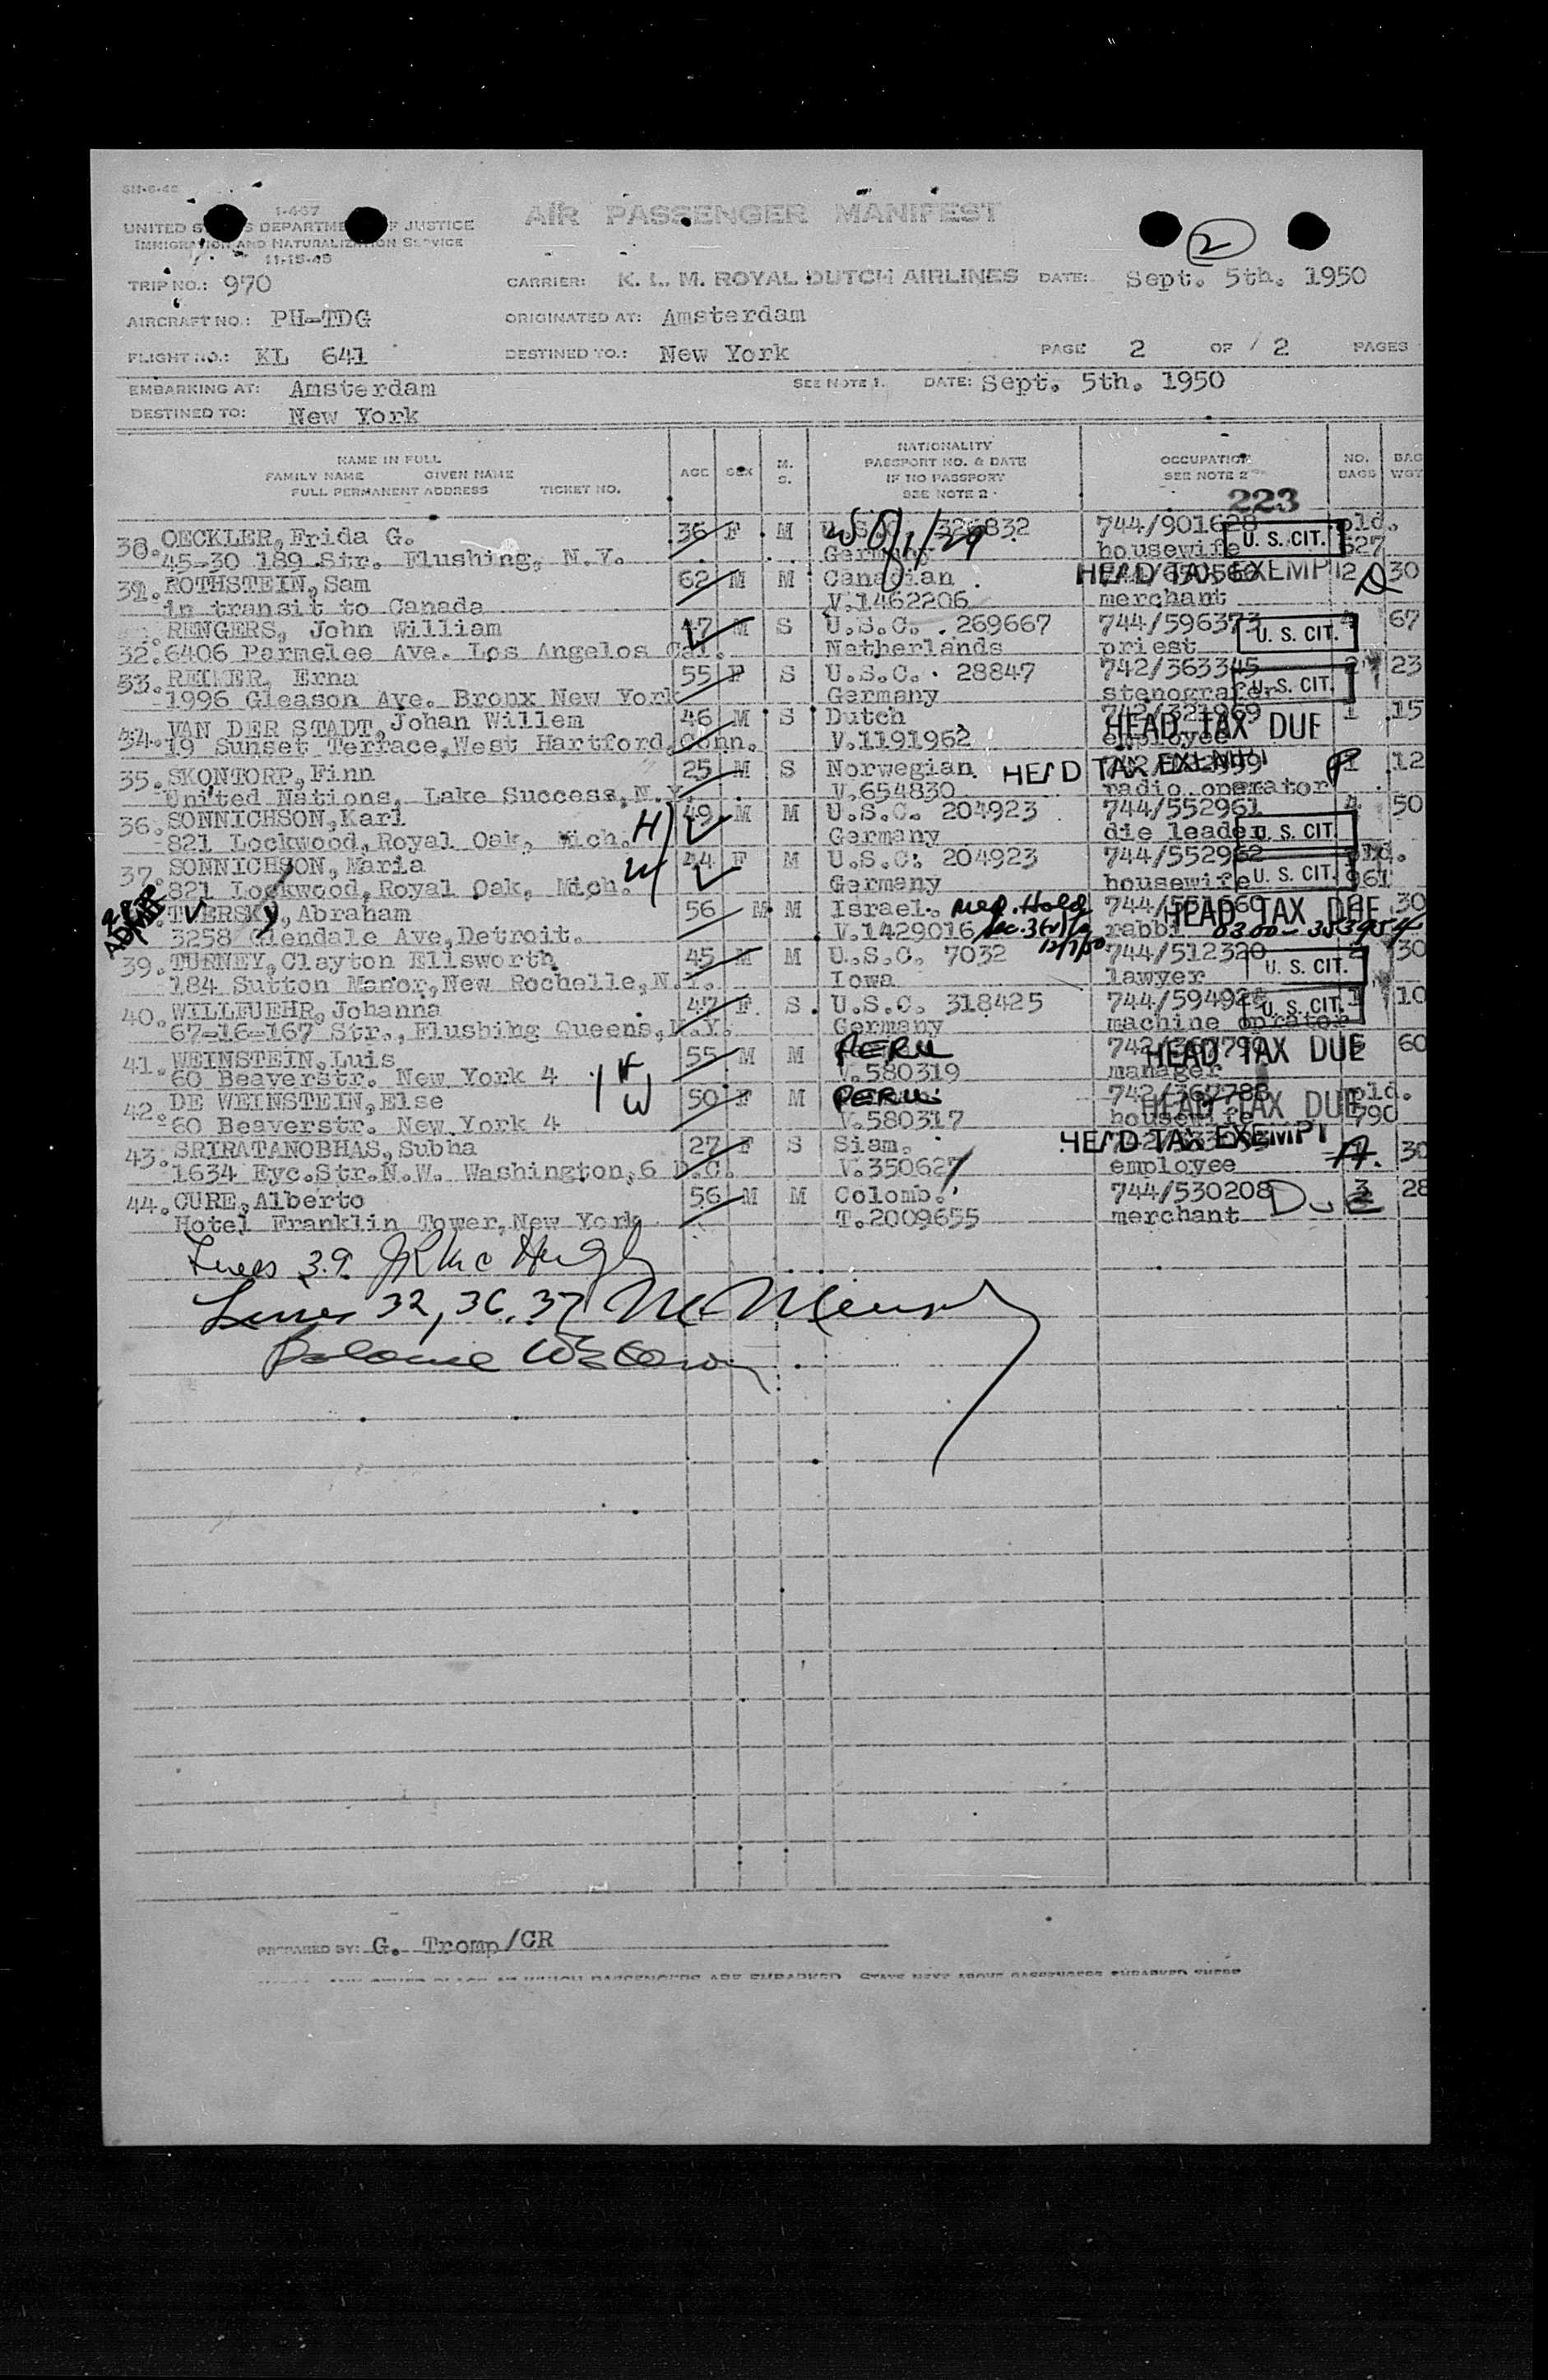 SH-6-48
I-467
UNITED S S DEPARTME F JUSTICE
IMMIGRATION AND NATURALIZATION SERVICE
11-15-49
AIR PASSENGER MANIFEST
2
TRIP NO.: 970 CARRIER: K. L. M. ROYAL DUTCH AIRLINES DATE: Sept. 5th. 1950
AIRCRAFT NO.: PH-TDG ORIGINATED AT: Amsterdam
FLIGHT NO.: KL 641 DESTINED TO.: New York PAGE 2 OF 2 PAGES
EMBARKING AT: Amsterdam SEE NOTE 1. DATE: Sept. 5th. 1950
DESTINED TO: New York
NAME IN FULL
FAMILY NAME GIVEN NAME
FULL PERMANENT ADDRESS TICKET NO.
AGE SEX M. S.
NATIONALITY
PASSPORT NO. & DATE
IF NO PASSPORT
SEE NOTE 2
OCCUPATION
SEE NOTE 2
NO. BAGS BAG WGT
223
30. OECKLER, Frida G. 36 F M U.S.C. 326832 744/901628 pld.
45-30 189 Str. Flushing, N.Y. Germany housewife U. S. CIT. 627
31. ROTHSTEIN, Sam 62 M M Canadian HEAD TAX EXEMPT 2 30
in transit to Canada V.1462206 merchant
RENGERS, John William 47 M S U.S.C. 269667 744/596373 U. S. CIT. 4 67
32. 6406 Parmelee Ave. Los Angelos Cal. Netherlands priest
33. REIMER, Erna 55 F S U.S.C. 28847 742/363345 2 23
1996 Gleason Ave. Bronx New York Germany stenografer U. S. CIT.
34. VAN DER STADT, Johan Willem 46 M S Dutch 742/321969 HEAD TAX DUE 1 15
19 Sunset Terrace, West Hartford, Conn. V.1191962 employee
35. SKONTORP, Finn 25 M S Norwegian HEAD TAX EXEMPT 1 12
United Nations, Lake Success, N.Y. V.654830 radio operator
36. SONNICHSON, Karl H 49 M M U.S.C. 204923 744/552961 4 50
821 Lockwood, Royal Oak, Mich. Germany die leader U. S. CIT.
37. SONNICHSON, Maria W 44 F M U.S.C. 204923 744/552962 pld.
821 Lockwood, Royal Oak, Mich. Germany housewife U. S. CIT. 961
ADMIR TVERSKY, Abraham V y 56 M M Israel. Med. Hold HEAD TAX DUE 30
3258 Glendale Ave, Detroit. V.1429016 12/7/50 rabbi 0300-
39. TURNEY, Clayton Ellsworth 45 M M U.S.C. 7032 744/512320 2 30
184 Sutton Manor, New Rochelle, N.Y. Iowa lawyer U. S. CIT.
40. WILLFUEHR, Johanna 47 F S U.S.C. 318425 744/594926 1 10
67-16-167 Str., Flushing Queens, N.Y. Germany machine oprator U. S. CIT.
41. WEINSTEIN, Luis 55 M M PERU 742/367790 HEAD TAX DUE 60
60 Beaverstr. New York 4 V.580319 manager
42. DE WEINSTEIN, Else W 50 F M PERU 742/367788 HEAD TAX DUE pld.
60 Beaverstr. New York 4 V.580317 housewife 790
43. SRIRATANOBHAS, Subha 27 F S Siam. HEAD TAX EXEMPT 30
1634 Eye.Str.N.W. Washington, 6 D.C. V.350627 employee
44. CURE, Alberto 56 M M Colomb. 744/530208 Due 3 28
Hotel Franklin Tower, New York T.2009655 merchant
Lines 39. JR McHugh
Lines 32, 36, 37
PREPARED BY: G. Tromp/CR
ANY OTHER PLACE AT WHICH PASSENGERS ARE EMBARKED, STATE NEXT ABOVE PASSENGERS EMBARKED THERE